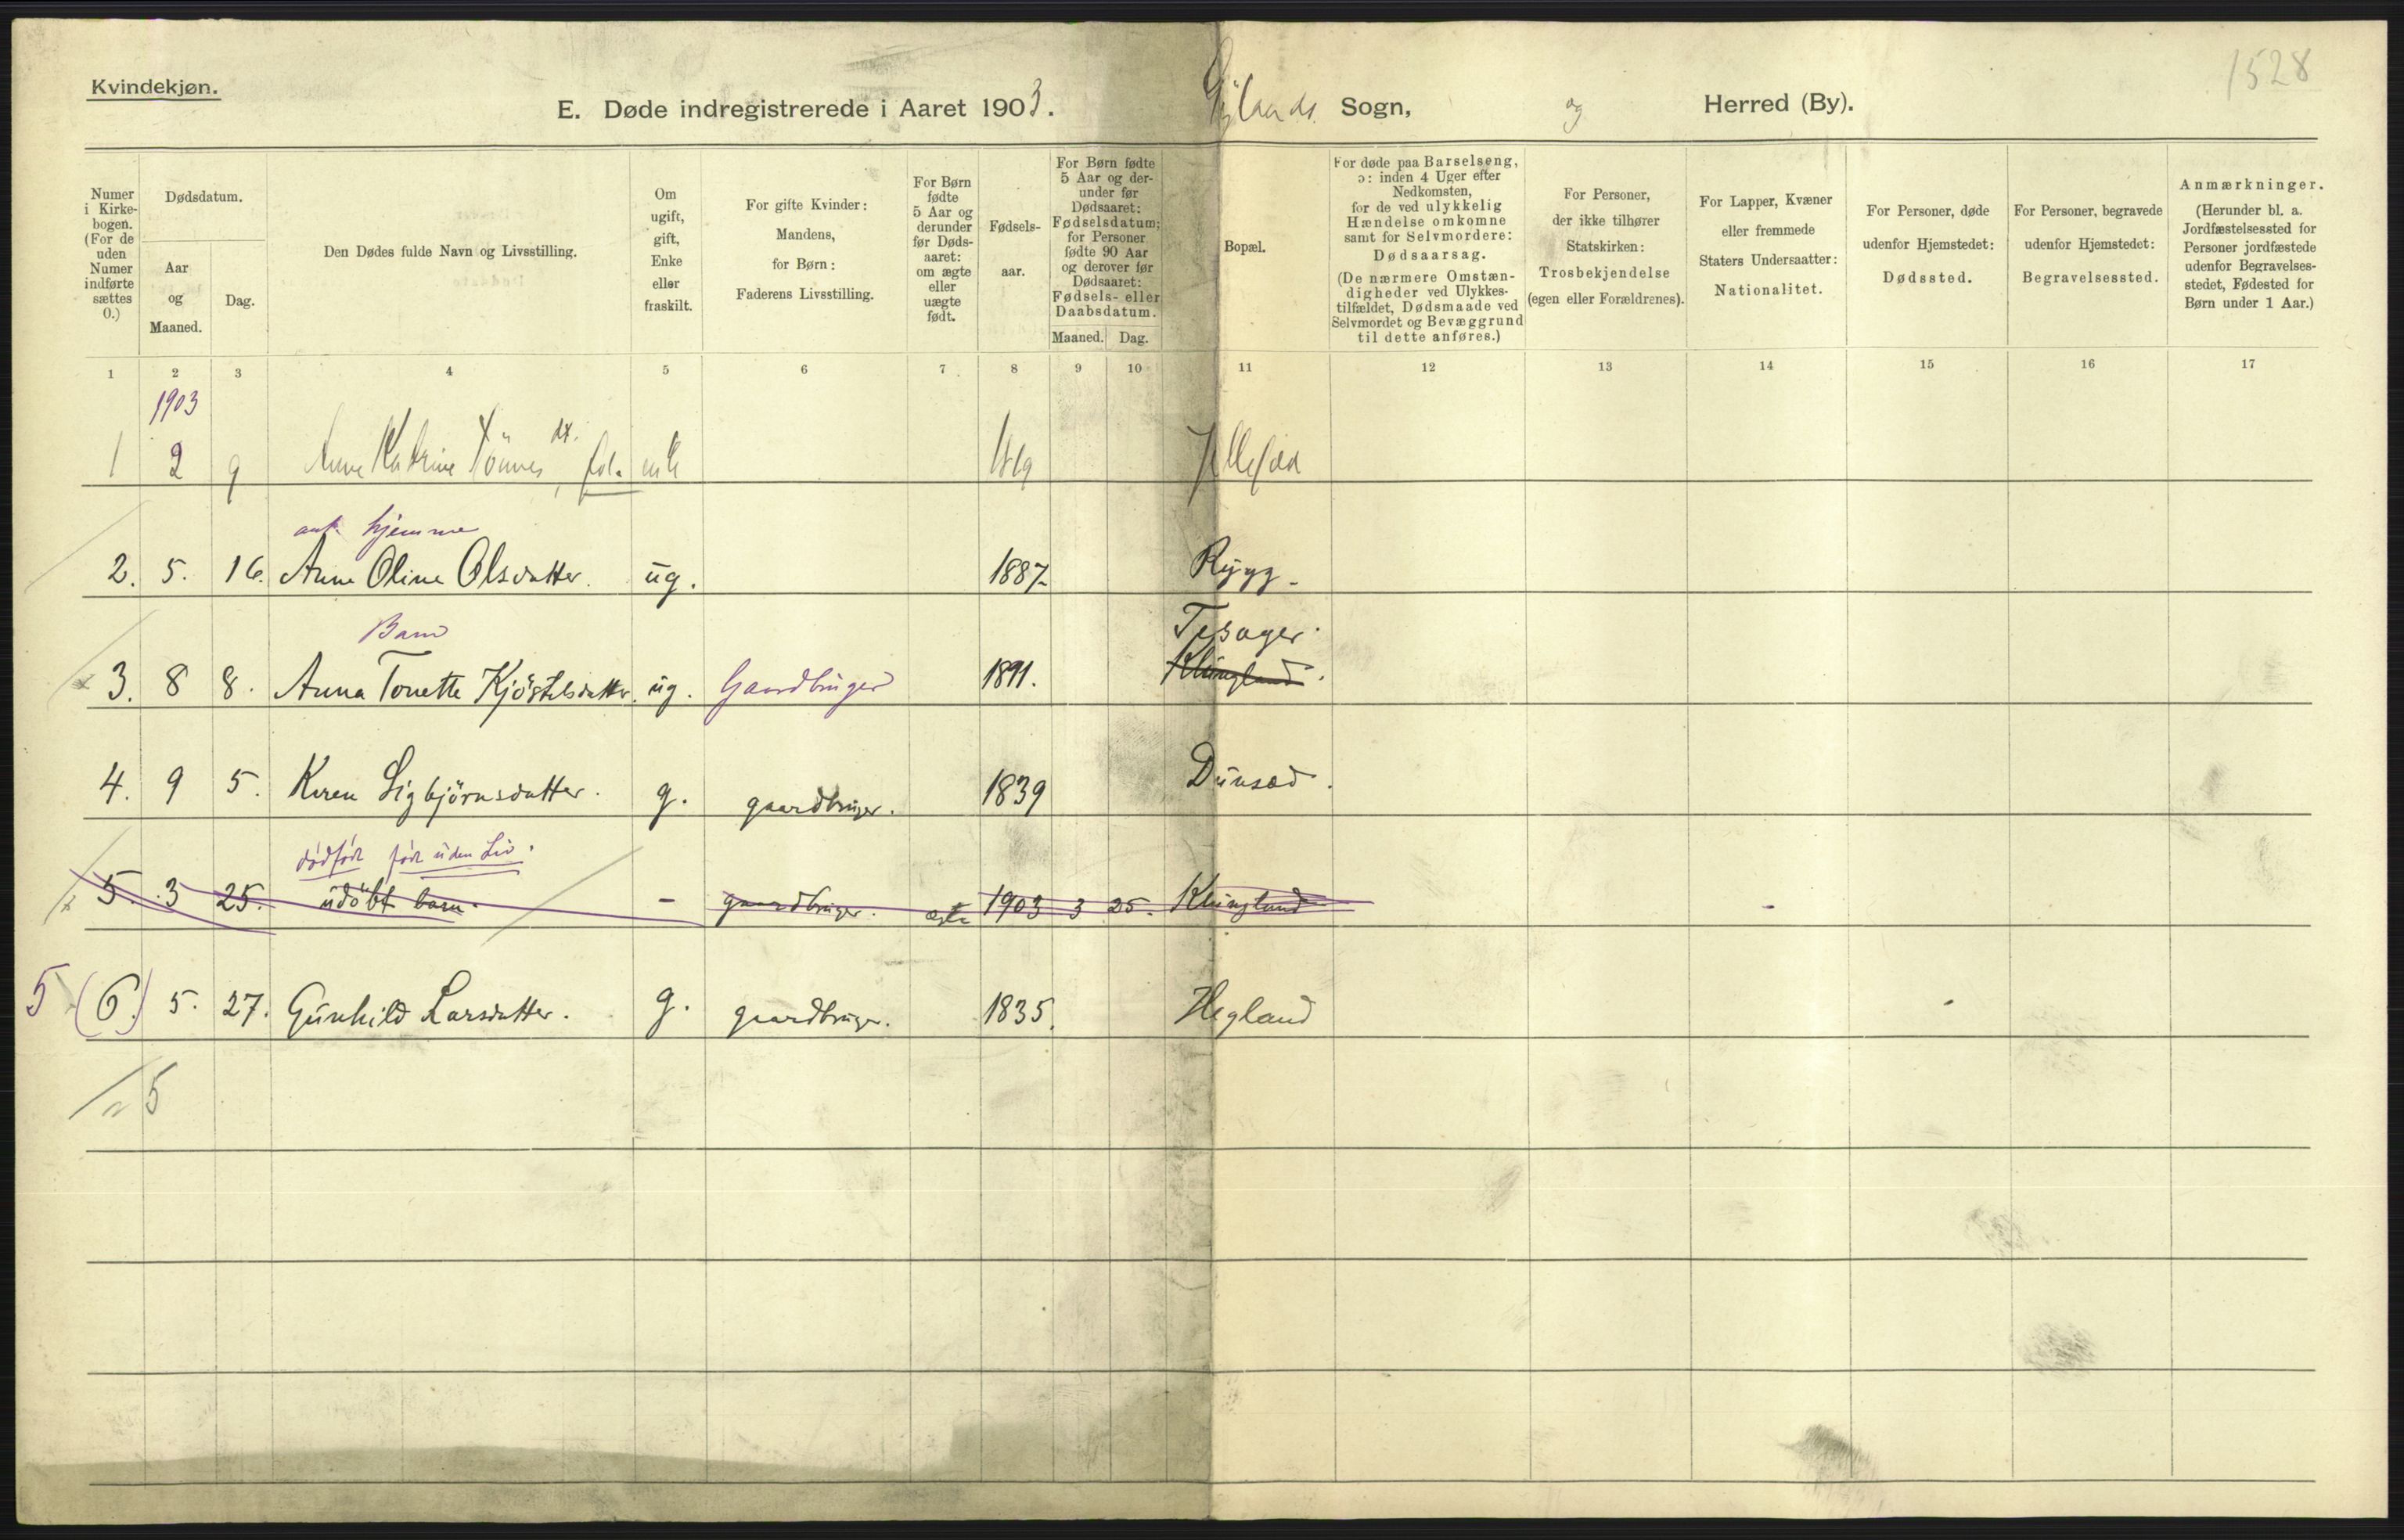 1528
Kvindekjøn.
E. Døde indregistrerede i Aaret 1903. Gylands Sogn, og Herred (By).
Numer i Kirkebogen. (For de uden Numer indførte sættes 0.)
Dødsdatum.
Aar og Maaned.
Dag.
Den Dødes fulde Navn og Livsstilling.
Om ugift, gift, Enke eller fraskilt.
For gifte Kvinder: Mandens, for Børn: Faderens Livsstilling.
For Børn fødte 5 Aar og derunder før Dødsaaret: om ægte eller uægte født.
Fødselsaar.
For Børn fødte 5 Aar og derunder før Dødsaaret: Fødselsdatum; for Personer fødte 90 Aar og derover før Dødsaaret: Fødsels- eller Daabsdatum.
Maaned. Dag.
Bopæl.
For døde paa Barselseng, ɔ: inden 4 Uger efter Nedkomsten, for de ved ulykkelig Hændelse omkomne samt for Selvmordere: Dødsaarsag. (De nærmere Omstændigheder ved Ulykkestilfældet, Dødsmaade ved Selvmordet og Bevæggrund til dette anføres.)
For Personer, der ikke tilhører Statskirken: Trosbekjendelse (egen eller Forældrenes).
For Lapper, Kvæner eller fremmede Staters Undersaatter: Nationalitet.
For Personer, døde udenfor Hjemstedet: Dødssted.
For Personer, begravede udenfor Hjemstedet: Begravelsessted.
Anmærkninger. (Herunder bl. a. Jordfæstelsessted for Personer jordfæstede udenfor Begravelsesstedet, Fødested for Børn under 1 Aar.)
1 2 3 4 5 6 7 8 9 10 11 12 13 14 15 16 17
1903
1 2 9 Anne Katrine Tönnes dt. enke
hjemme
2. 5. 16. Anne Oline Olsdatter. ug. 1887 Rygg
Barn
Tesager.
3. 8 8. Anna Tonette Kjöstelsdatter. ug. Gaardbruger 1891. Klungland.
4. 9 5. Karen Sigbjörnsdatter. g. gaardbruger. 1839 Dunsæd.
dødfødt født uden Liv.
5. 3 25. udöbt barn. - gaardbruger. ægte 1903 3 25. Klungland
5 (6.) 5. 27. Gunhild Larsdatter. g. gaardbruger. 1835. Hegland
5